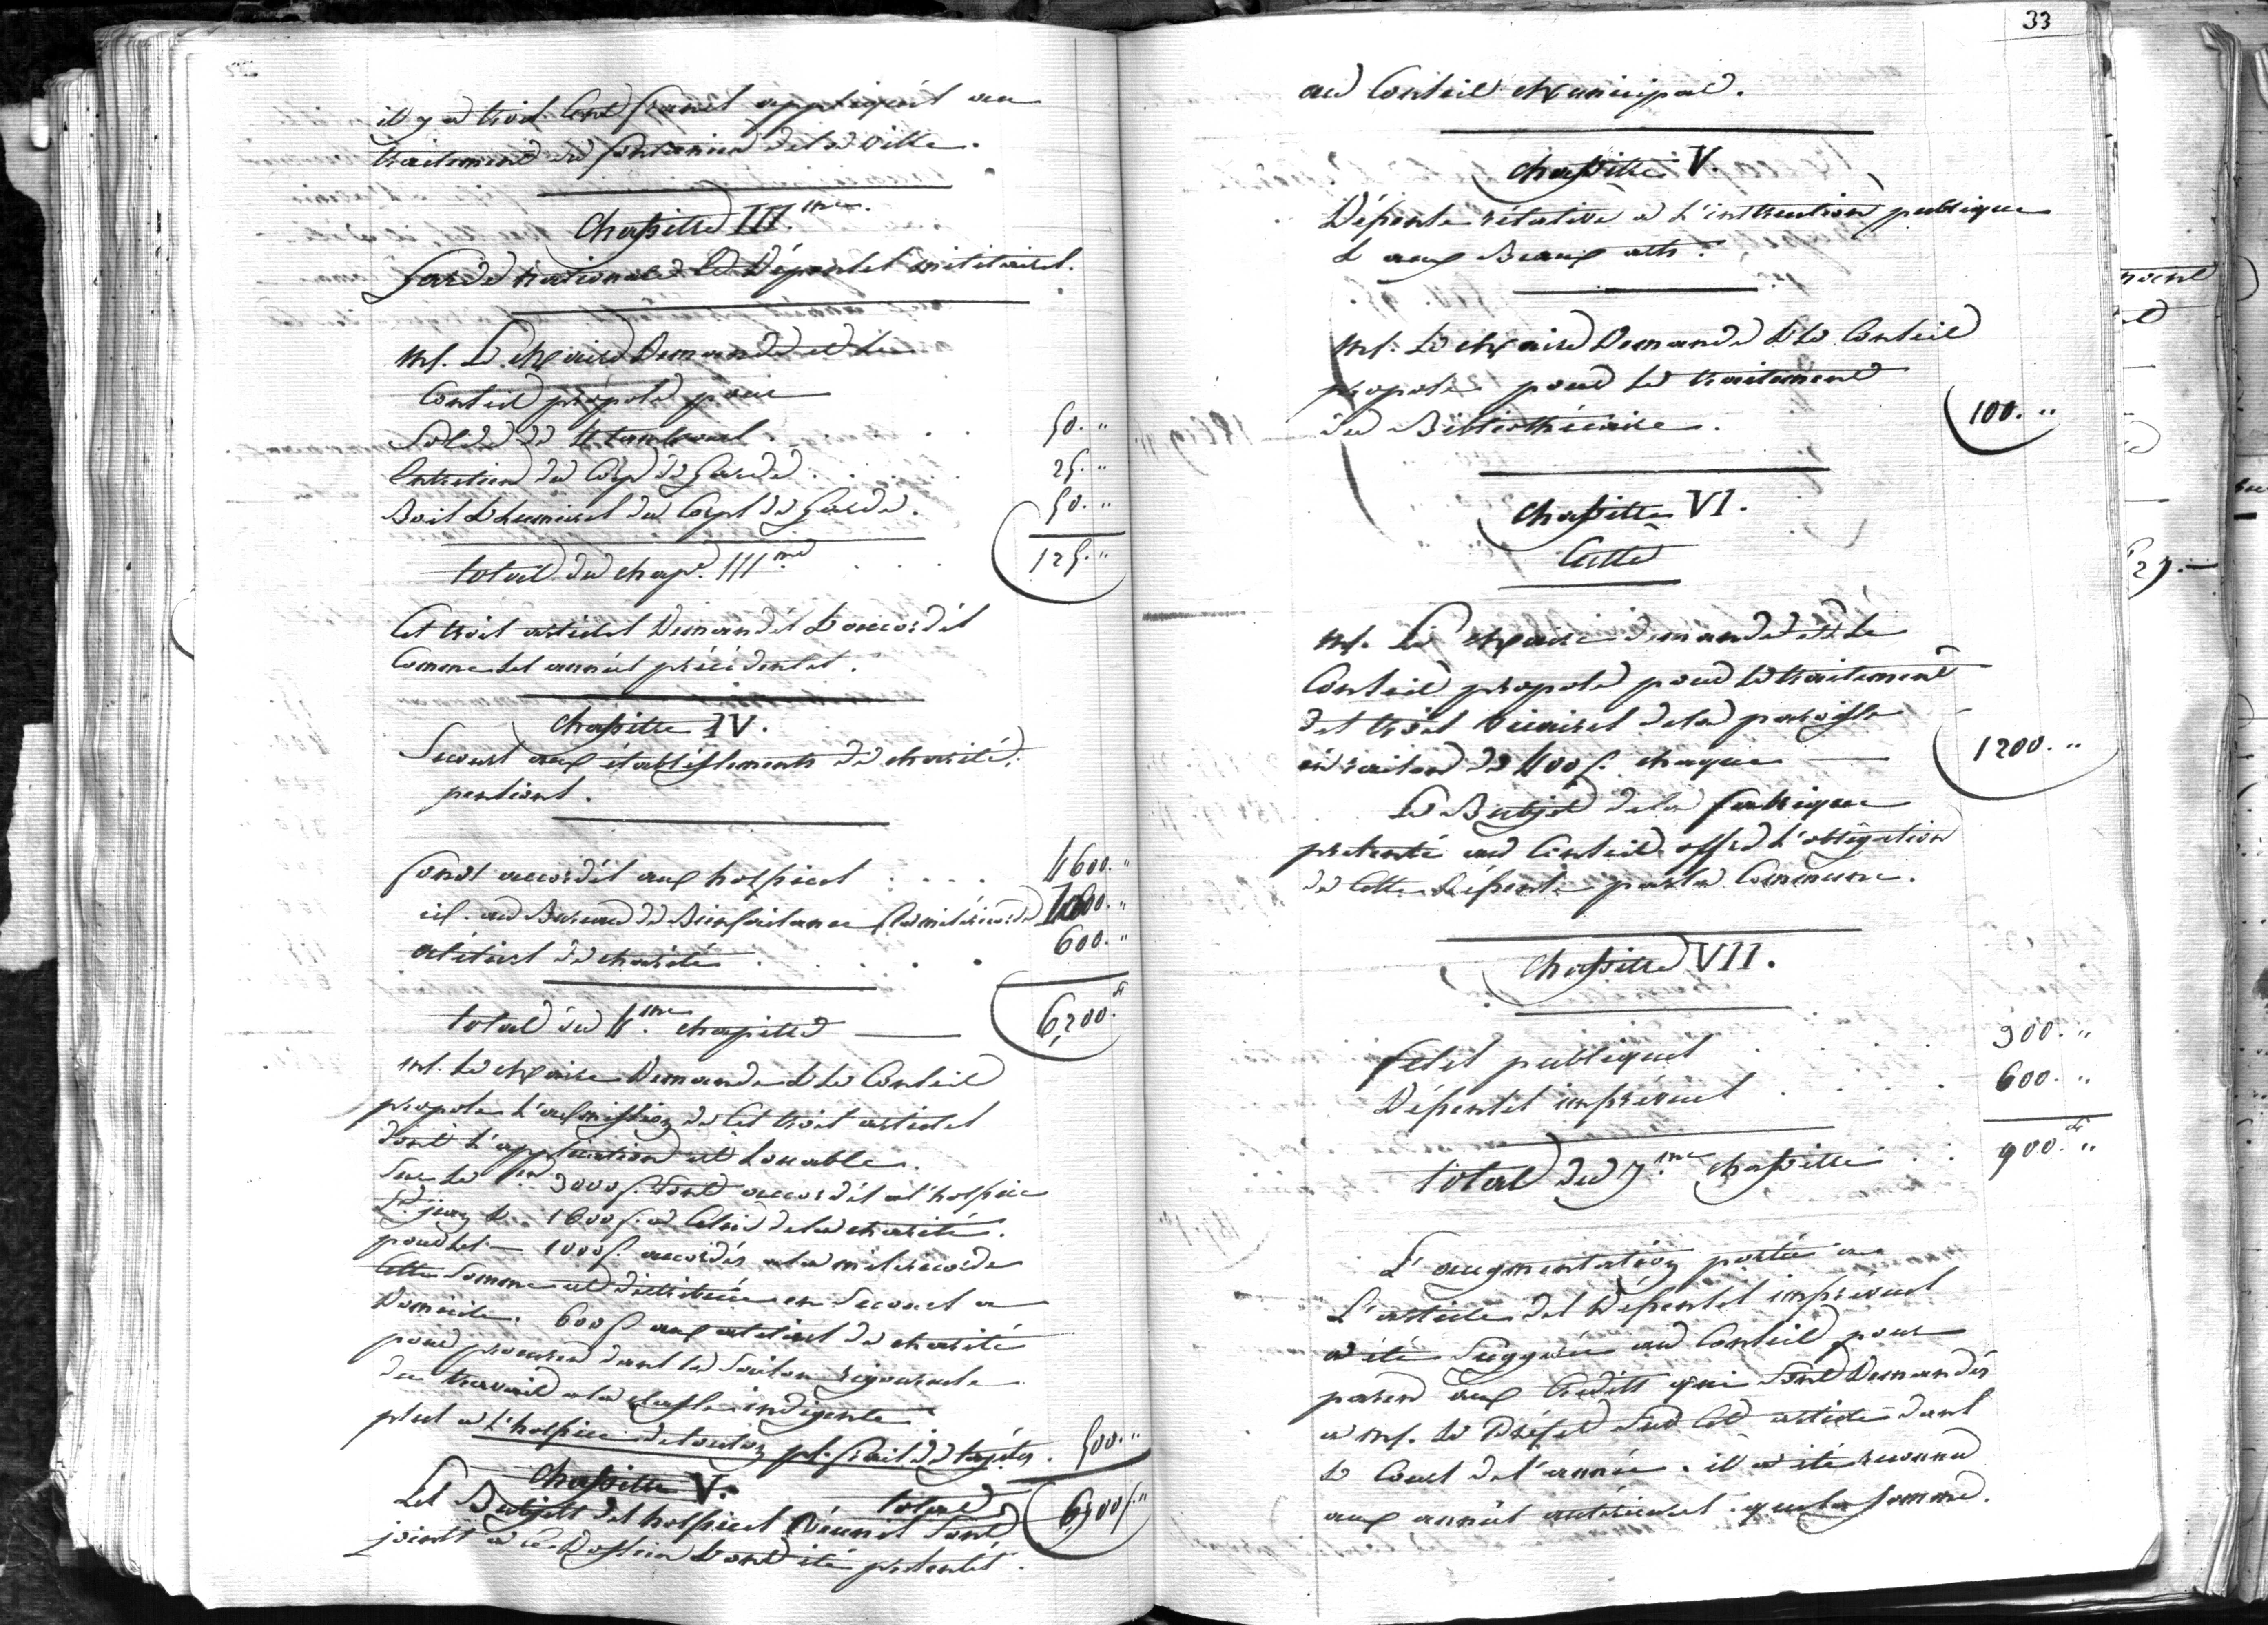 il y a trois Cent francs appliqués au
traitement du fontainier de la ville.
Chapitre III.me
Garde nationale et Dépenses militaires.
Mr. Le Maire Demande et Le
Conseil propose pour
Solde de tambours . . 50. "
Entretien du Corp de Garde . . . . 25. "
Bois & Lumières du Corps de Garde. 50. "
total du chap. III me . . . 125. "
Ces trois articles Demandés & accordés
Comme les années précédentes.
Chapitre IV.
Secours aux établissements de charité.
pensions.
fonds accordés aux hospices . . . . 4600. "
id. au Bureau de Bienfaisance (la miséricorde) 1000. "
atéliers de charité . . . . . 600. "
total du 4.me chapitre — 6,200. fr
Mr. Le Maire Demande & Le Conseil
propose l'admission de Ces trois articles
dont l'application est louable.
Sur le 1er 3000 f. sont accordés à l'hospice
St. jean & 1600 f. à Celui de la charité.
pour les — 1000 f. accordés à la miséricorde
Cette Somme est distribuée en Secours à
Domicile. 600 f. aux atéliers de charité
pour procurer dans la Saison rigoureuse
du travail à la classe indigente
plus à l'hospice de toulon pr. frais de 500. "
Chapitre V. total 6,700 f. "
Les Budjets des hospices Réunis Sont
joints à Ce Dossier & ont été présentés.
33
au Conseil Municipal.
Chapitre V.
Dépense rélative à L'instruction publique
& aux Beaux arts.
Mr. Le Maire Demande & Le Conseil
propose pour Le traitement
du Bibliothécaire. 100. "
Chapitre VI.
Culte
Mr. Le Maire demande et Le
Conseil propose pour Le traitement
des trois vicaires de la paroisse
en raison de 400 f. chaque — 1200. "
Le Budjet de la fabrique
présenté au Conseil offre L'obligation
de Cette Dépense par la Commune.
Chapitre VII.
fetes publiques . . . . 300. "
Dépenses imprévues . . . . 600. "
total du 7.me chapitre . . 900. fr "
L'augmentation portée à
L'article des Dépenses imprévues
a été Suggérée au Conseil pour
parer aux Crédits qui Sont Demandés
à Mr. Le Préfet Sur Cet article dans
Le Cours de l'année. il a été reconnu
aux années antérieures que la Somme.